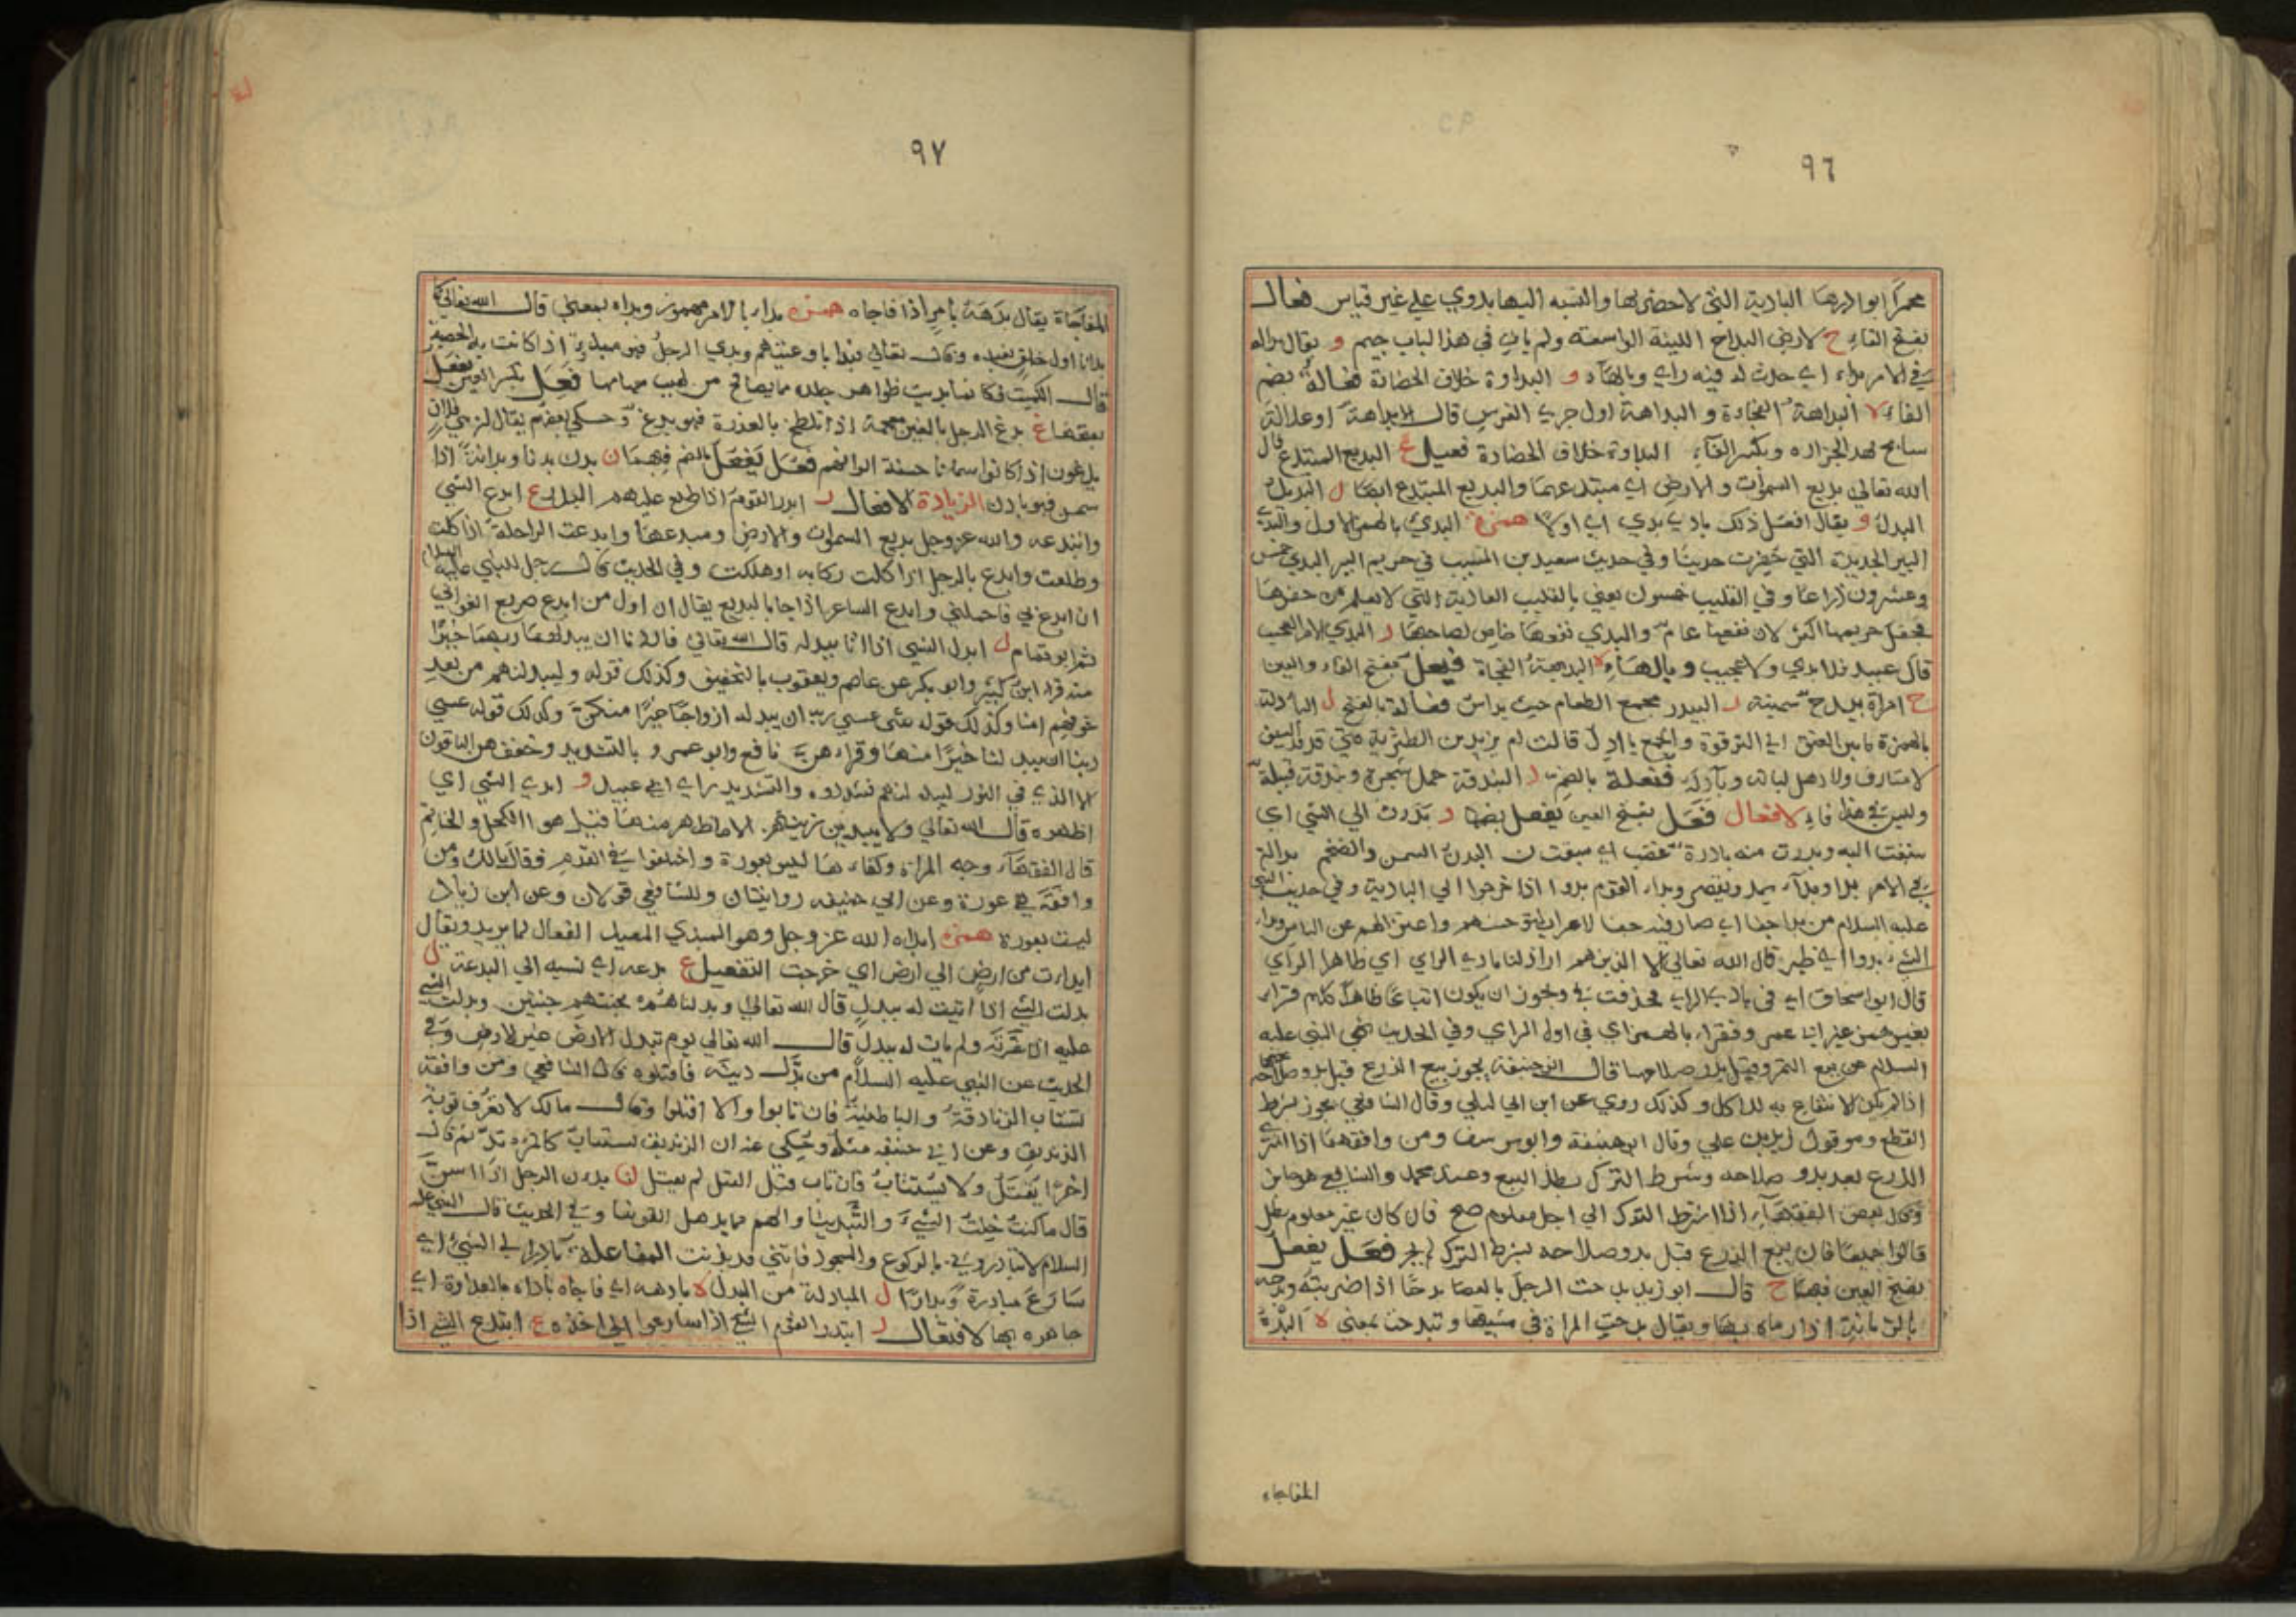 ٩٦
محمرا بوادرها البادية التي لا حضر بها والنسبه اليها بدوي علي غير قياس فعال
بفتح الفاء ح لارض البداح اللينة الواسعته ولم يات في هذا الباب جيم و يقال بداله
في الامر بداء اي حدث له فيه راي وبالهآء و البداوة خلاف الحضارة فعالة بضم
الفاء ه البداهة الفجاءة و البداهة اول جري الفرس قال الا بداهة او علالة
سابح نهد الجزاره وبكسر الفآء البداوة خلاف الحضارة فعيل ع البديع المبتدع قال
الله تعالي بديع السموات والارض اي مبتدعهما والبديع المبتدع ايضا ل البديل
البدل و يقال افعل ذلك بادي بدي اي اولا همزة البدي بالهمز الاول والبدي
البير الجديدة التي حفرت حديثا وفي حديث سعيد بن المسيب في حريم البير البدي خمس
وعشرون ذراعا وفي القليب خمسون يعني بالقليب العادية التي لا يعلم من حفرها
فجعل حريمها اكثر لان نفعها عام والبدي نفعها خاص لصاحبها و البدي الامر العجيب
قال عبيد فلا بدي ولا عجيب وبالهاء ه البديهة الفجاة فيعل بفتح الفاء والعين
ح امراة بيدح سمينة ر البيدر مجمع الطعام حيث يداس فعالة بالفتح ل البادلة
بالهمزة ما بين العنق الي الترقوة والجمع بادل قالت ام يزيد بن الطثرية فتي قد قد السيف
لا متازف ولا رهل لباته وبآدله فنعلة بالضم ر البندقة حمل شجرة وبندقة قبيلة
وليس في هذا فاء لافعال فعل بفتح العين يفعل بضمها ر بدرت الي الشي اي
سبقت اليه وبدرت منه بادرة غضب اي سبقت ن البدن السمن والضخم بداله
في الامر بدا وبدآء يمد ويقصر وبدا القوم بدوا اذا خرجوا الي البادية وفي حديث النبي
عليه السلام من بدا جفا اي صار فيه جفا الاعراب لتوحشهم واعتزالهم عن الناس وبدا
الشي بدوا اي ظهر قال الله تعالي الا الذين هم اراذلنا بادي الراي اي ظاهر الراي
قال ابو اسحاق اي في بادي الراي فحذفت في ويجوز ان يكون اتباعا ظاهرا كلام قراء
بغير همز غير ابا عمرو فقرا بالهمز اي في اول الراي وفي الحديث نهي النبي عليه
السلام عن بيع الثمر وقبل بدو صلاحها قال ابو حنيفة يجوز بيع الزرع قبل بدو صلاحه
اذا لم يكن لا نتفاع به للاكل وكذلك روي عن ابن ابي ليلي وقال الشافعي يجوز بشرط
القطع وهو قول زيد بن علي وقال ابو حنيفة وابو يوسف ومن وافقهما اذا اشتري
الزرع بعد بدو صلاحه وشرط الترك بطل البيع وعند محمد والشافعي هو جائز
وقال بعض الفقهآء اذا اشترط الترك الي اجل معلوم صح فان كان غير معلوم بطل
قالوا جميعا فان بيع الزرع قبل بدو صلاحه بشرط الترك لم يجز فعل يفعل
بفتح العين فيهما ح قال ابو زيد بدحت الرجل بالعصا بدحا اذا ضربته وبدحه
بالرمانة اذا رماه بها ويقال بدحت المراة في مشيتها وتبدحت بمعني ه البده
المفاجاه
٩٧
المفاجاة يقال بدهه بامر اذا فاجاه همزه بدا بالامر مهموز وبداه بمعني قال الله تعالي كما
بدانا اول خلق نعيده وقال تعالي فبدا باوعيتهم وبدي الرجل فهو مبدو اذا كانت به الحصبة
قال الكميت فكانما بديت ظواهر جلده مما يصافح من لهيب سهامها فعل بكسر العين يفعل
بفتحها غ بدغ الرجل بالغين معجمة اذا تلطخ بالعذرة فهو بدغ وحكي بعضهم يقال لزبني فلان
بدغون اذا كانوا سمانا حسنة الوانهم فعل يفعل بالضم فيهما ن بدن بدنا وبدانة اذا
سمن فهو بادن الزيادة لافعال ر ابدر القوم اذا طلع عليهم البدر ع ابدع الشي
وابتدعه والله عز وجل بديع السموات والارض ومبدعهما وابدعت الراحلة اذا كلت
وظلعت وابدع بالرجل اذا كلت ركابه او هلكت وفي الحديث قال رجل للنبي عليه السلام
اني ابدع بي فاحملني وابدع الشاعر اذا جا بالبديع يقال ان اول من ابدع صريع الغواني
ثم ابو تمام ل ابدل الشي اذا اتا ببدله قال الله تعالي فاردنا ان يبدلهما ربهما خيرا
منه قراه ابن كثير وابو بكر عن عاصم ويعقوب بالتخفيف وكذلك قوله وليبدلنهم من بعد
خوفهم امنا وكذلك قوله عسي ربه ان يبدله ازواجا خيرا منكن وكذلك قوله عسي
ربنا ان يبدلنا خيرا منها وقراهن نافع وابو عمرو بالتشديد وخففهن الباقون
الا الذي في النور ليبدلنهم فشددوه والتشديد راي ابي عبيد و ابدي الشي اي
اظهره قال الله تعالي ولا يبدين زينتهن الا ما ظهر منها فقيل هو الكحل والخاتم
قال الفقهآء وجه المراة وكفاها ليس بعورة واختلفوا في القدم فقال مالك ومن
وافقه هي عورة وعن ابي حنيفه روايتان وللشافعي قولان وعن ابن زياد
ليست بعورة همزه ابداه الله عز وجل وهو المبدي المعيد الفعال لما يريد ويقال
ابدات من ارض الي ارض اي خرجت التفعيل ع بدعه اي نسبه الي البدعة ل
بدلت الشي اذا اتيت له ببدل قال الله تعالي وبدلناهم بجنتيهم جنتين وبدلت الشي
عليه اذا غيرته ولم يات له ببدل قال الله تعالي يوم تبدل الارض غير الارض وفي
الحديث عن النبي عليه السلام من بدل دينه فاقتلوه قال الشافعي ومن وافقه
تستتاب الزنادقة والباطنية فان تابوا والا اقتلوا وقال مالك لا تعرف توبة
الزنديق وعن ابي حنيفه مثله وحكي عنه ان الزنديق يستتاب كالمرتد ثم قال
اخرا يقتل ولا يستتاب فان تاب قبل القتل لم يقتل ن بدن الرجل اذا اسن
قال ما كنت خلت الشيب والتبدينا والهم مما يذهل القرينا وفي الحديث قال النبي عليه
السلام لا تبادروني بالركوع والسجود فانني قد بدنت المفاعلة ر بادر الي الشي اي
سارع مبادرة وبدارا ل المبادلة من البدل ه بادهه اي فاجاه باداه بالعداوة اي
جاهره بها لافتعال ر ابتدر القوم الشي اذا سارعوا الي اخذه ع ابتدع الشي اذا